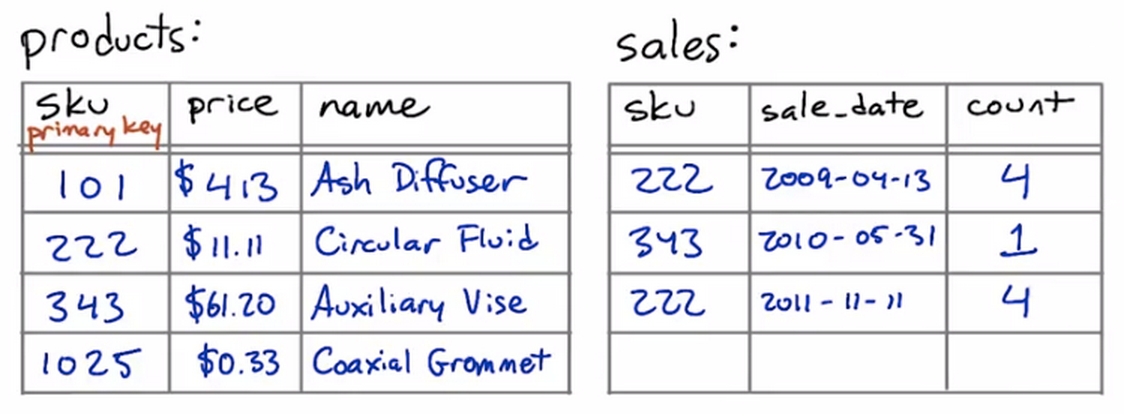 products:
sku price name
primary key
101 $413 Ash Diffuser
222 $11.11 Circular Fluid
343 $61.20 Auxiliary Vise
1025 $0.33 Coaxial Grommet
sales:
sku sale_date count
222 2009-04-13 4
343 2010-05-31 1
222 2011-11-11 4